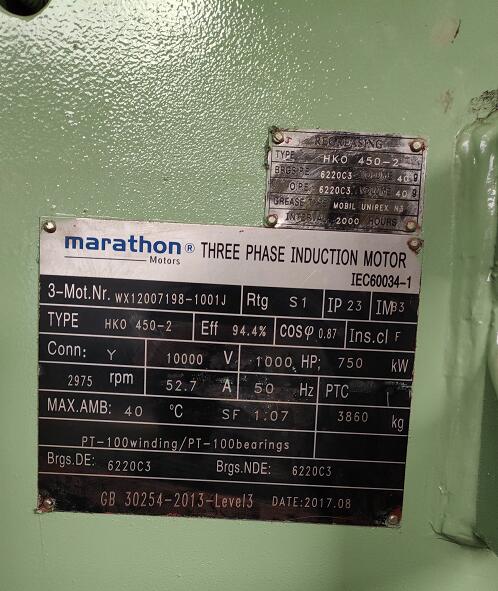 REGREASING
TYPE HKO 450-2
BRGS DE 6220C3 VOLUME 40 g
OPE 6220C3 VOLUME 40 g
GREASE TYPE MOBIL UNIREX N3
INTERVAL 2000 HOURS
marathon® THREE PHASE INDUCTION MOTOR
Motors
IEC60034-1
3-Mot.Nr. WX12007198-1001J Rtg S1 IP 23 IM B3
TYPE HKO 450-2 Eff 94.4% cosφ 0.87 Ins.cl F
Conn: Y 10000 V 1000 HP; 750 kW
2975 rpm 52.7 A 50 Hz PTC
MAX.AMB: 40 °C SF 1.07 3860 kg
PT-100winding/PT-100bearings
Brgs.DE: 6220C3 Brgs.NDE: 6220C3
GB 30254-2013-Level3 DATE:2017.08